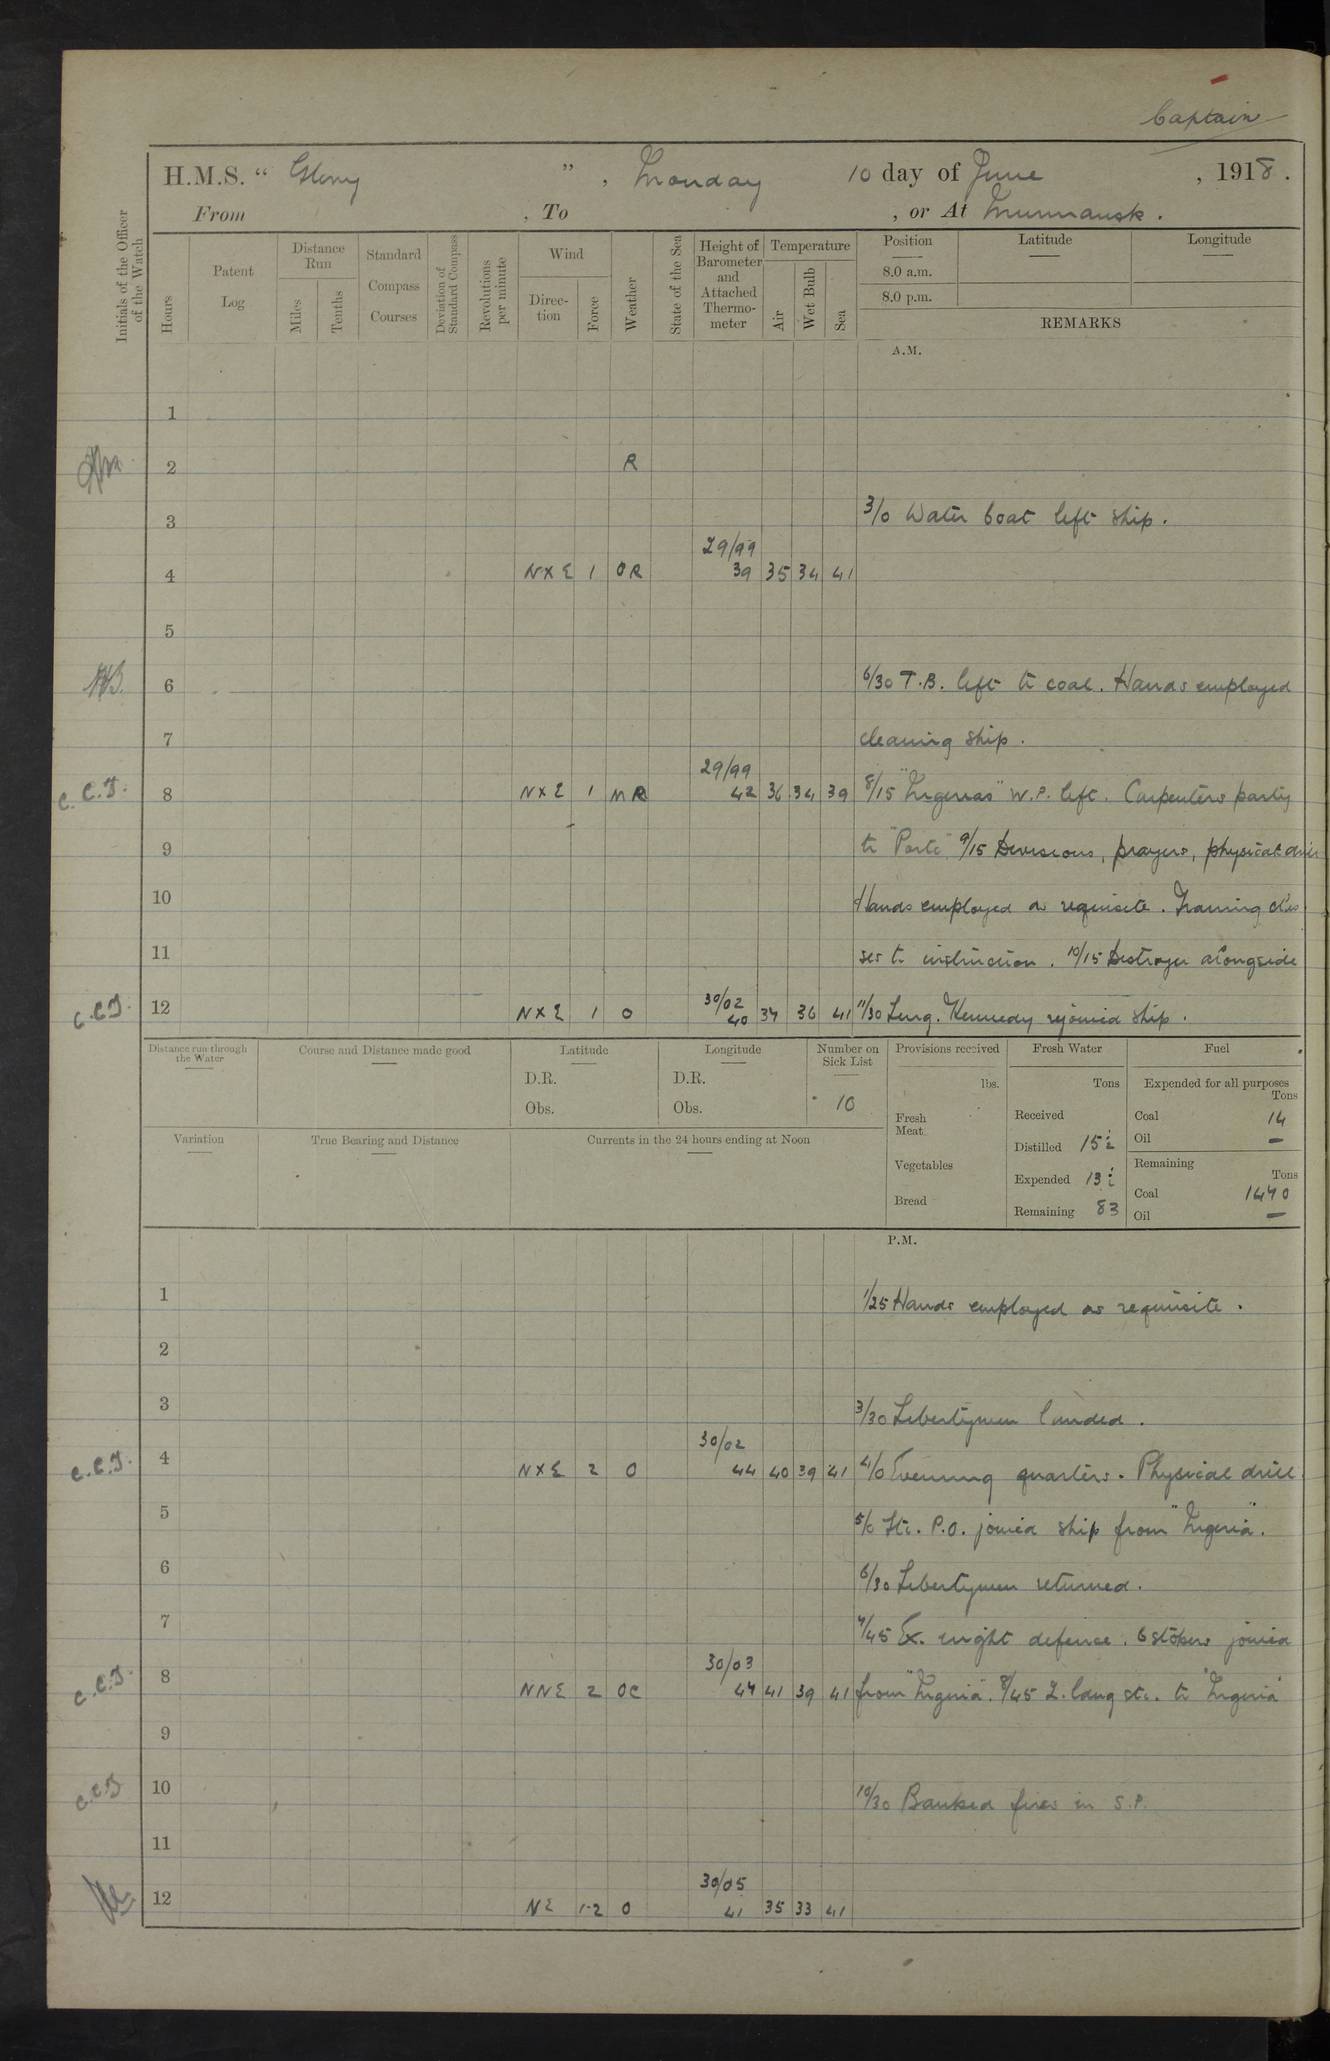 Captain
H.M.S. “ Glory ” , Monday 10 day of June , 1918 .
From , To , or At Murmansk .
Initials of the Officer of the Watch
Hours
Patent Log
Distance Run
Miles
Tenths
Standard Compass Courses
Deviation of Standard Compass
Revolutions per minute
Wind
Direction
Force
Weather
State of the Sea
Height of Barometer and Attached Thermometer
Temperature
Air
Wet Bulb
Sea
Position
8.0 a.m.
8.0 p.m.
Latitude
Longitude
REMARKS
A.M.
1
2 R
3 3/0 Water boat left ship.
29/99
4 NXE 1 OR 39 35 34 41
5
6 6/30 T.B. left to coal. Hands employed
7 cleaning ship.
29/99
C.C.J. 8 NXE 1 MR 42 36 34 39 8/15 "Nigerias" W.P. left. Carpenters party
9 to "Porto" 9/15 Divisions, prayers, physical drill
10 Hands employed as requisite. Training clas
11 ses to instruction. 10/15 Destroyer alongside
30/02
C.C.J. 12 NXE 1 O 40 37 36 41 11/30 Surg. Kennedy rejoined ship.
Distance run through the Water
Course and Distance made good
Latitude
D.R.
Obs.
Longitude
D.R.
Obs.
Number on Sick List
10
Provisions received
lbs.
Fresh Meat
Vegetables
Bread
Fresh Water
Tons
Received
Distilled 15½
Expended 13½
Remaining 83
Fuel
Expended for all purposes
Tons
Coal 14
Oil —
Remaining
Tons
Coal 1470
Oil —
Variation
True Bearing and Distance
Currents in the 24 hours ending at Noon
P.M.
1 1/25 Hands employed as requisite.
2
3 3/30 Libertymen landed.
30/02
C.C.J. 4 NXE 2 O 44 40 39 41 4/0 Evening quarters. Physical drill.
5 5/0 Sto. P.O. joined ship from "Nigeria".
6 6/30 Libertymen returned.
7 7/45 Ex. night defence. 6 stokers joined
30/03
C.C.J. 8 NNE 2 OC 44 41 39 41 from "Nigeria". 8/45 to "Nigeria"
9
C.C.J. 10 10/30 Banked fires in S.P.
11
30/05
12 NE 1-2 O 41 35 33 41